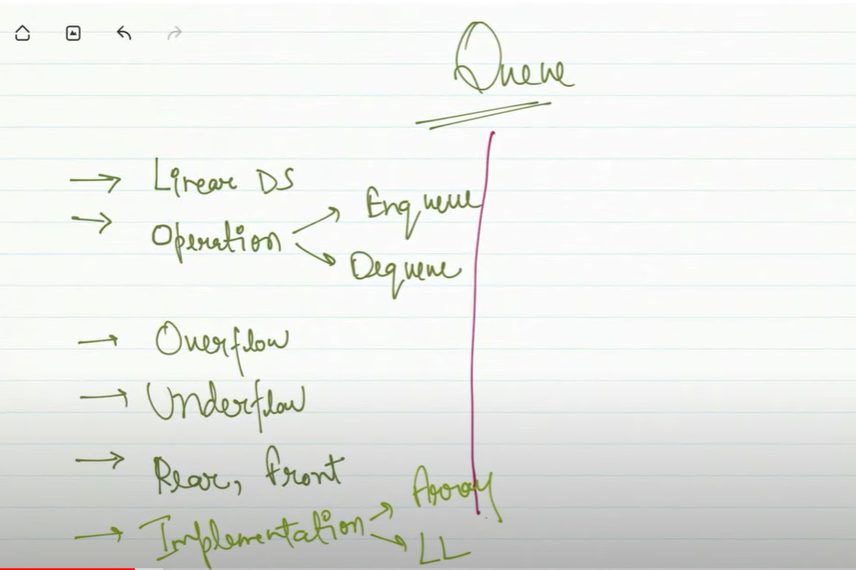 Queue
→ Linear DS
→ Operation
Enqueue
Dequeue
→ Overflow
→ Underflow
→ Rear, Front
→ Implementation
Array
LL